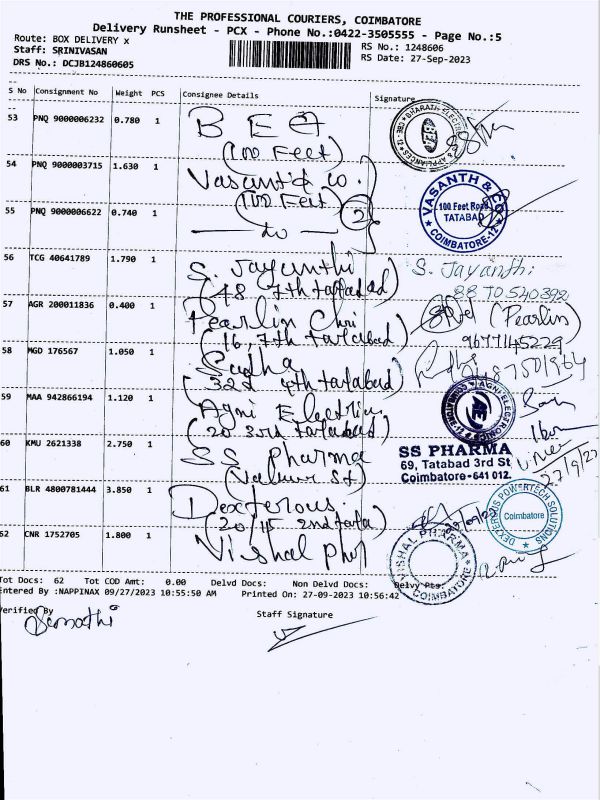 THE PROFESSIONAL COURIERS, COIMBATORE
Delivery Runsheet - PCX - Phone No.:0422-3505555 - Page No.:5
Route: BOX DELIVERY x
Staff: SRINIVASAN
DRS No.: DCJB124860605
RS No.: 1248606
RS Date: 27-Sep-2023
S No Consignment No Weight PCS Consignee Details Signature
53 PNQ 9000006232 0.780 1 B E A
(100 Feet)
BHARATH ELECTRO
& APPLIANCES
54 PNQ 9000003715 1.630 1 Vasanth & Co.
(100 Feet)
VASANTH & CO
100 Feet Road
TATABAD
COIMBATORE-12
55 PNQ 9000006622 0.740 1 — do —
2
56 TCG 40641789 1.790 1 S. Jayanthi
(48 7th tatabad)
S. Jayanthi
88 70540392
57 AGR 200011836 0.400 1 Pearlin Chri
(16, 7th tatabad)
(Pearlin)
9677145229
58 MGD 176567 1.050 1 Sudha
(32d 4th tatabad)
59 MAA 942866194 1.120 1 Agni Electrics
(20 3rd tatabad)
AGNI ELECTRONICS
COIMBATORE-12
60 KMU 2621338 2.750 1 SS Pharma
(Valluvar St)
SS PHARMA
69, Tatabad 3rd St
Coimbatore-641 012.
27/9/23
61 BLR 4800781444 3.850 1 Dexterous
(20/15 2nd tata)
DEXTEROUS POWERTECH SOLUTIONS
Coimbatore
62 CNR 1752705 1.800 1 Vishal Phar
VISHAL PHARMA
COIMBATORE
Tot Docs: 62 Tot COD Amt: 0.00 Delvd Docs: Non Delvd Docs: Delvy Pts:
Entered By :NAPPINAX 09/27/2023 10:55:50 AM Printed On: 27-09-2023 10:56:42
Verified By
Staff Signature